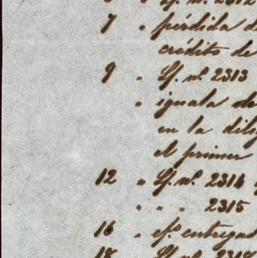 7 " pérdida d
crédito de
9 " Lj. nº 2313
" iguala de
en la dili
el primer
12 " Lj. nº 2314 y
" " " 2315
16 " efº entregad
18